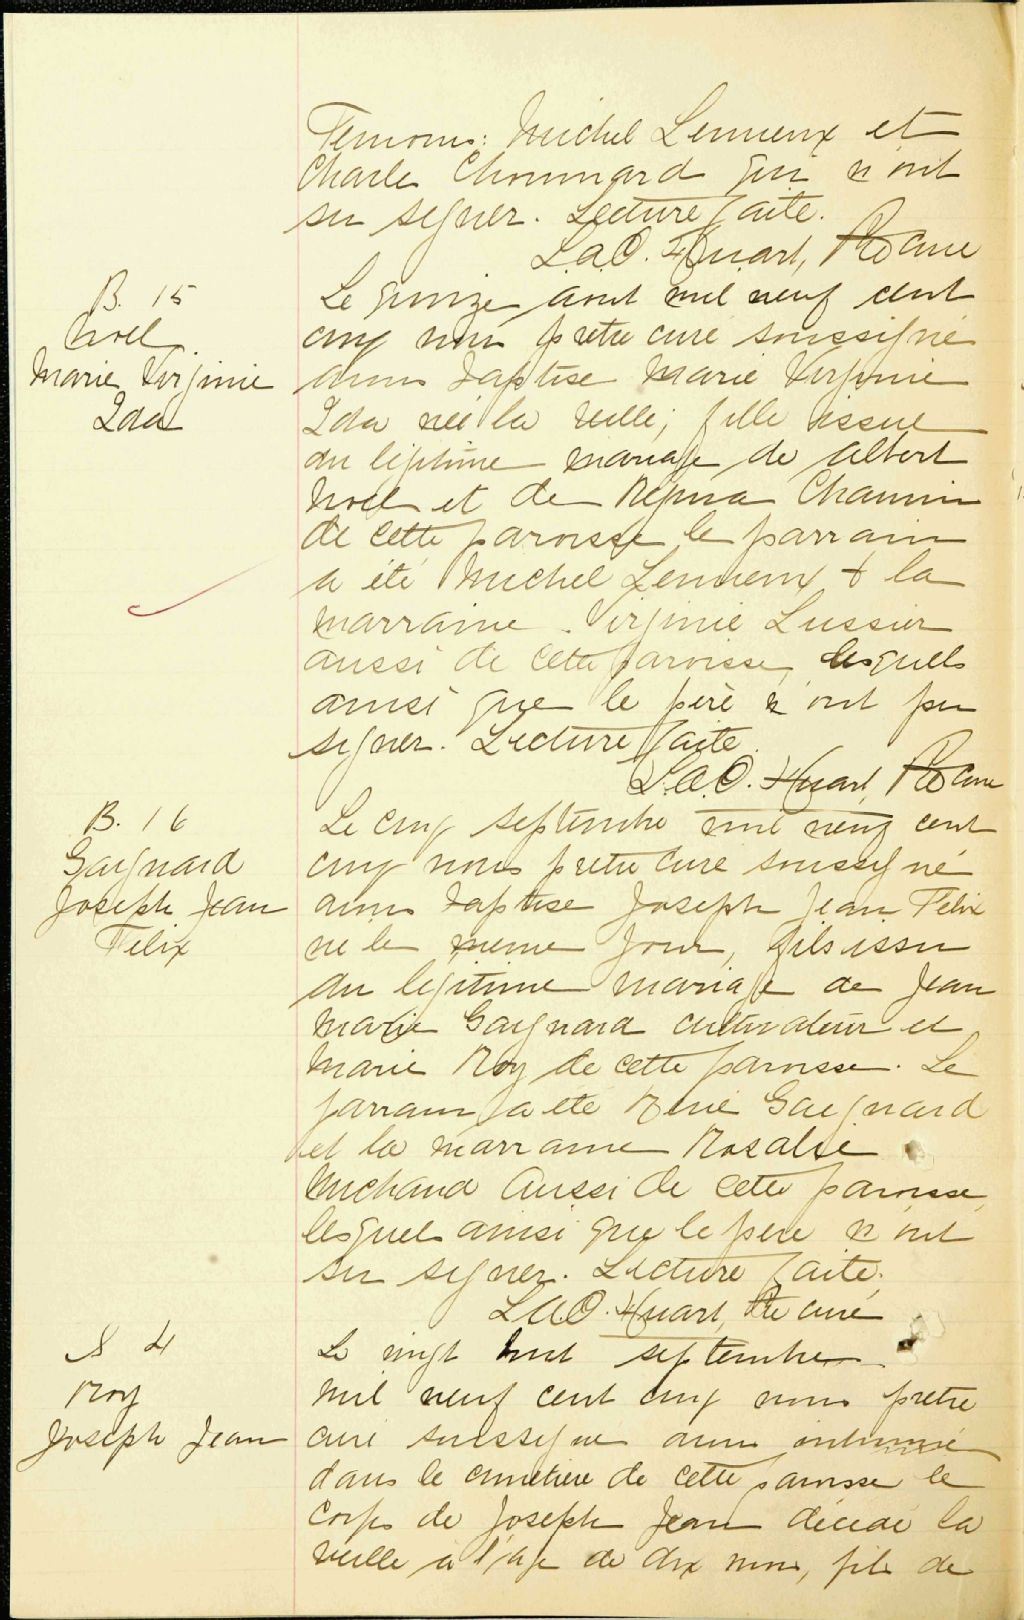 Temoins: Michel Lemieux et
Charles Chouinard qui n'ont
su signer. Lecture faite.
L.A.O. Huart, Ptre curé
B. 15
Noel
Marie Virginie
Ida
Le quinze aout mil neuf cent
cinq nous pretre curé soussigné
avons baptise Marie Virginie
Ida née la veille; fille issue
du légitime mariage de Albert
Noel et de Regina
de cette paroisse le parrain
a été Michel Lemieux & la
marraine Virginie Lussier
aussi de cette paroisse, lesquels
ainsi que le père n'ont pu
signer. Lecture faite.
L.A.O. Huart, Ptre curé
B. 16
Gaignard
Joseph Jean
Felix
Le cinq septembre mil neuf cent
cinq nous pretre curé soussigné
avons baptise Joseph Jean Félix
né le meme jour, fils issu
du legitime mariage de Jean
Marie Gaignard cultivateur et
Marie Roy de cette paroisse. Le
parrain a été René Gaignard
et la marraine Rosalie
Michaud aussi de cette paroisse,
lesquels ainsi que le père n'ont
su signer. Lecture faite.
L.A.O. Huart, Ptre curé
S 4
Roy
Joseph Jean
Le vingt huit septembre
mil neuf cent cinq nous pretre
curé soussigné avons inhumé
dans le cimetière de cette paroisse le
corps de Joseph Jean décédé la
veille à l'age de dix mois, fils de